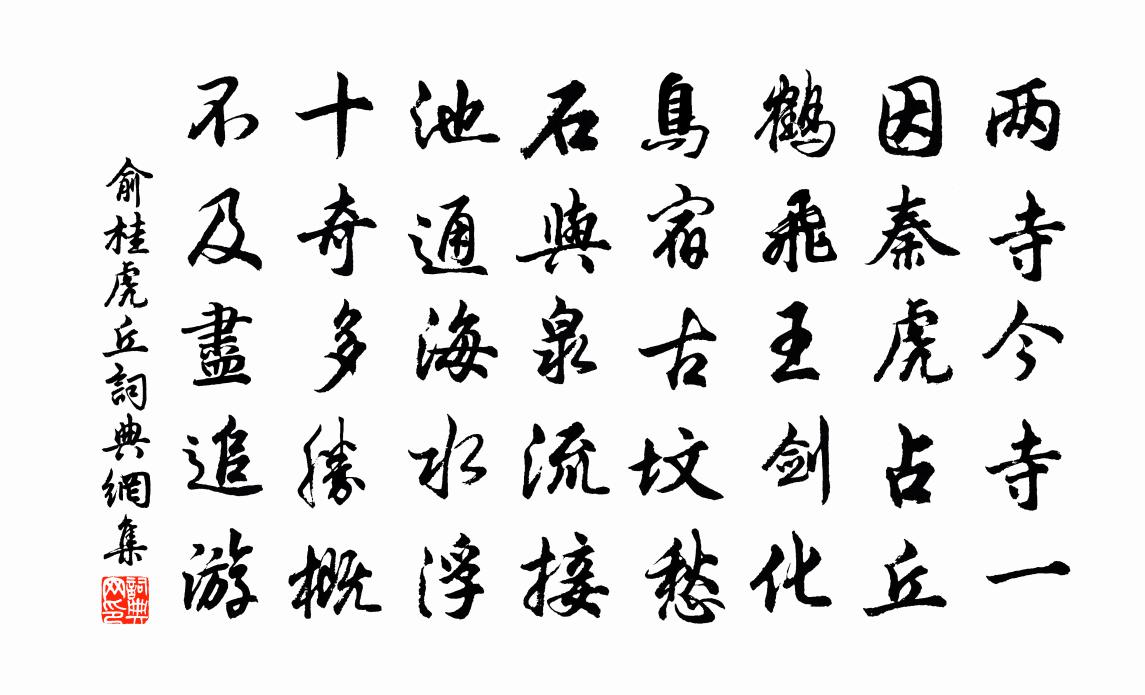 两寺今寺一
因秦虎占丘
鹤飛王剑化
鳥宿古坟愁
石與泉流接
池通海水浮
十奇多勝概
不及盡追游
俞桂虎丘詞典網集
詞典網印